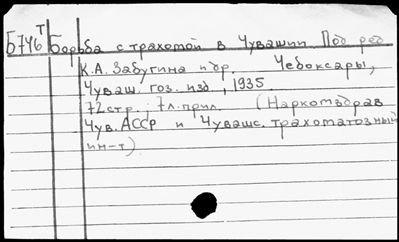 Б746 Т Борьба с трахомой в Чувашии Под ред
К.А. Забугина и др. Чебоксары,
Чуваш. гос. изд., 1935.
72 стр.; 7 л. прил. (Наркомздрав
Чув. АССР и Чувашс. трахоматозный
ин-т).